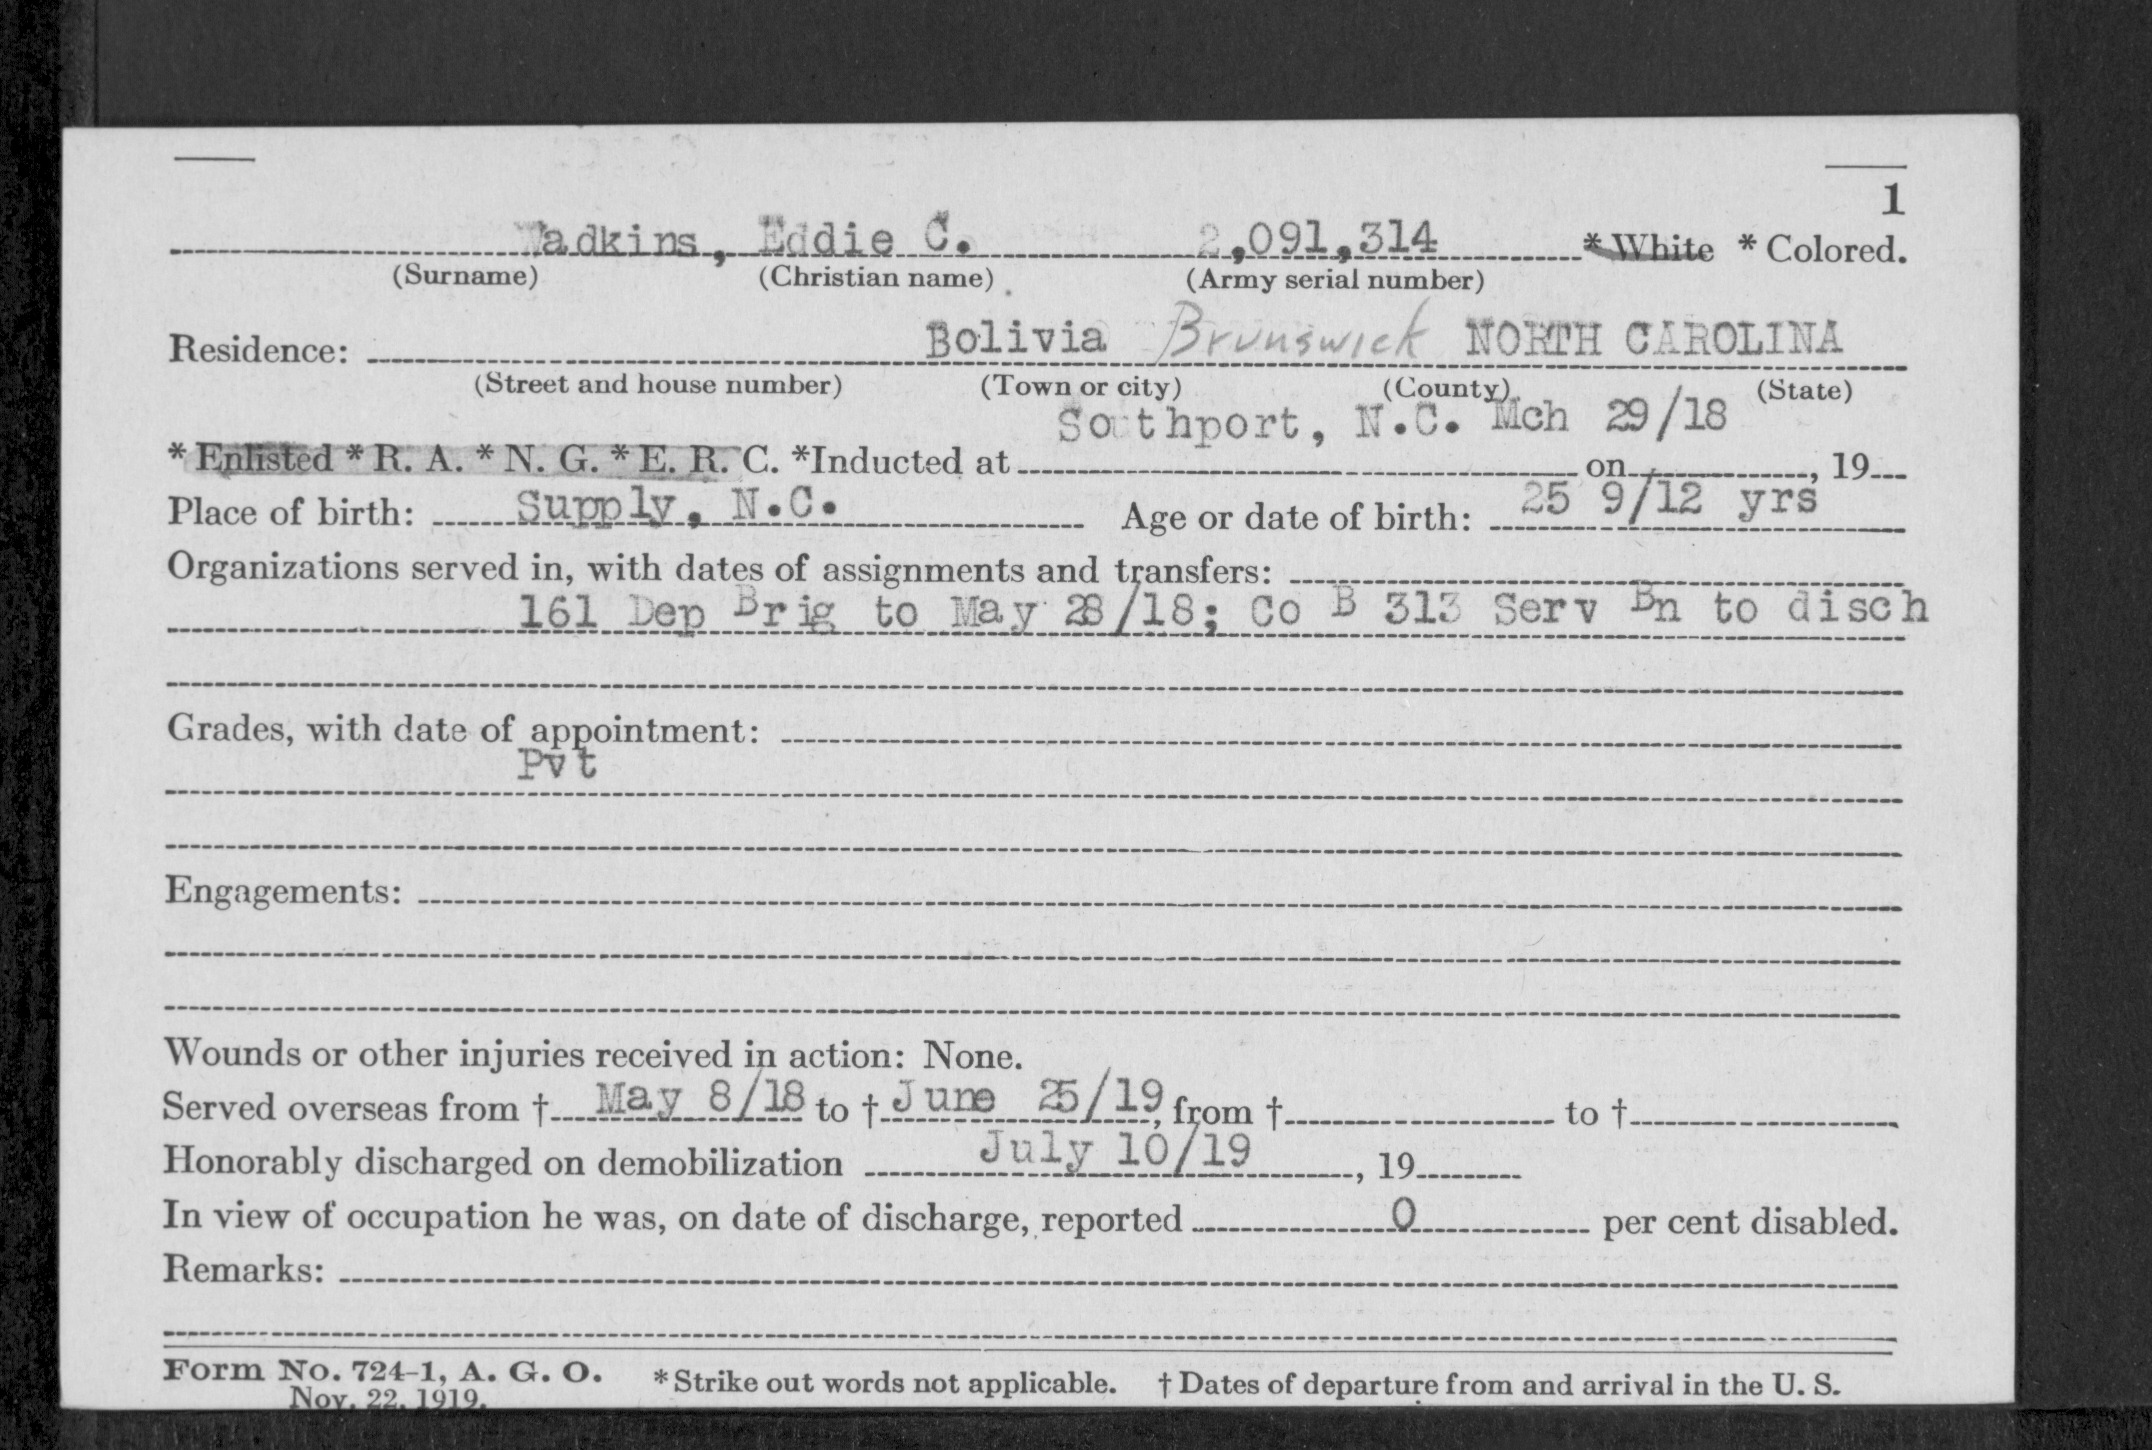 1
Wadkins, Eddie C. 2,091,314 * White * Colored.
(Surname) (Christian name) (Army serial number)
Residence: Bolivia Brunswick NORTH CAROLINA
(Street and house number) (Town or city) (County) (State)
Southport, N.C. Mch 29/18
* Enlisted * R. A. * N. G. * E. R. C. *Inducted at on , 19
Place of birth: Supply, N.C. Age or date of birth: 25 9/12 yrs
Organizations served in, with dates of assignments and transfers:
161 Dep Brig to May 28/18; Co B 313 Serv Bn to disch
Grades, with date of appointment:
Pvt
Engagements:
Wounds or other injuries received in action: None.
Served overseas from † May 8/18 to † June 25/19, from † to †
Honorably discharged on demobilization July 10/19 , 19
In view of occupation he was, on date of discharge, reported 0 per cent disabled.
Remarks:
Form No. 724-1, A. G. O. * Strike out words not applicable. † Dates of departure from and arrival in the U. S.
Nov. 22, 1919.